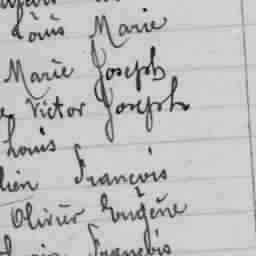 Louis Marie
Marie Joseph
Victor Joseph
Louis
lien François
Olivier Eugène
François